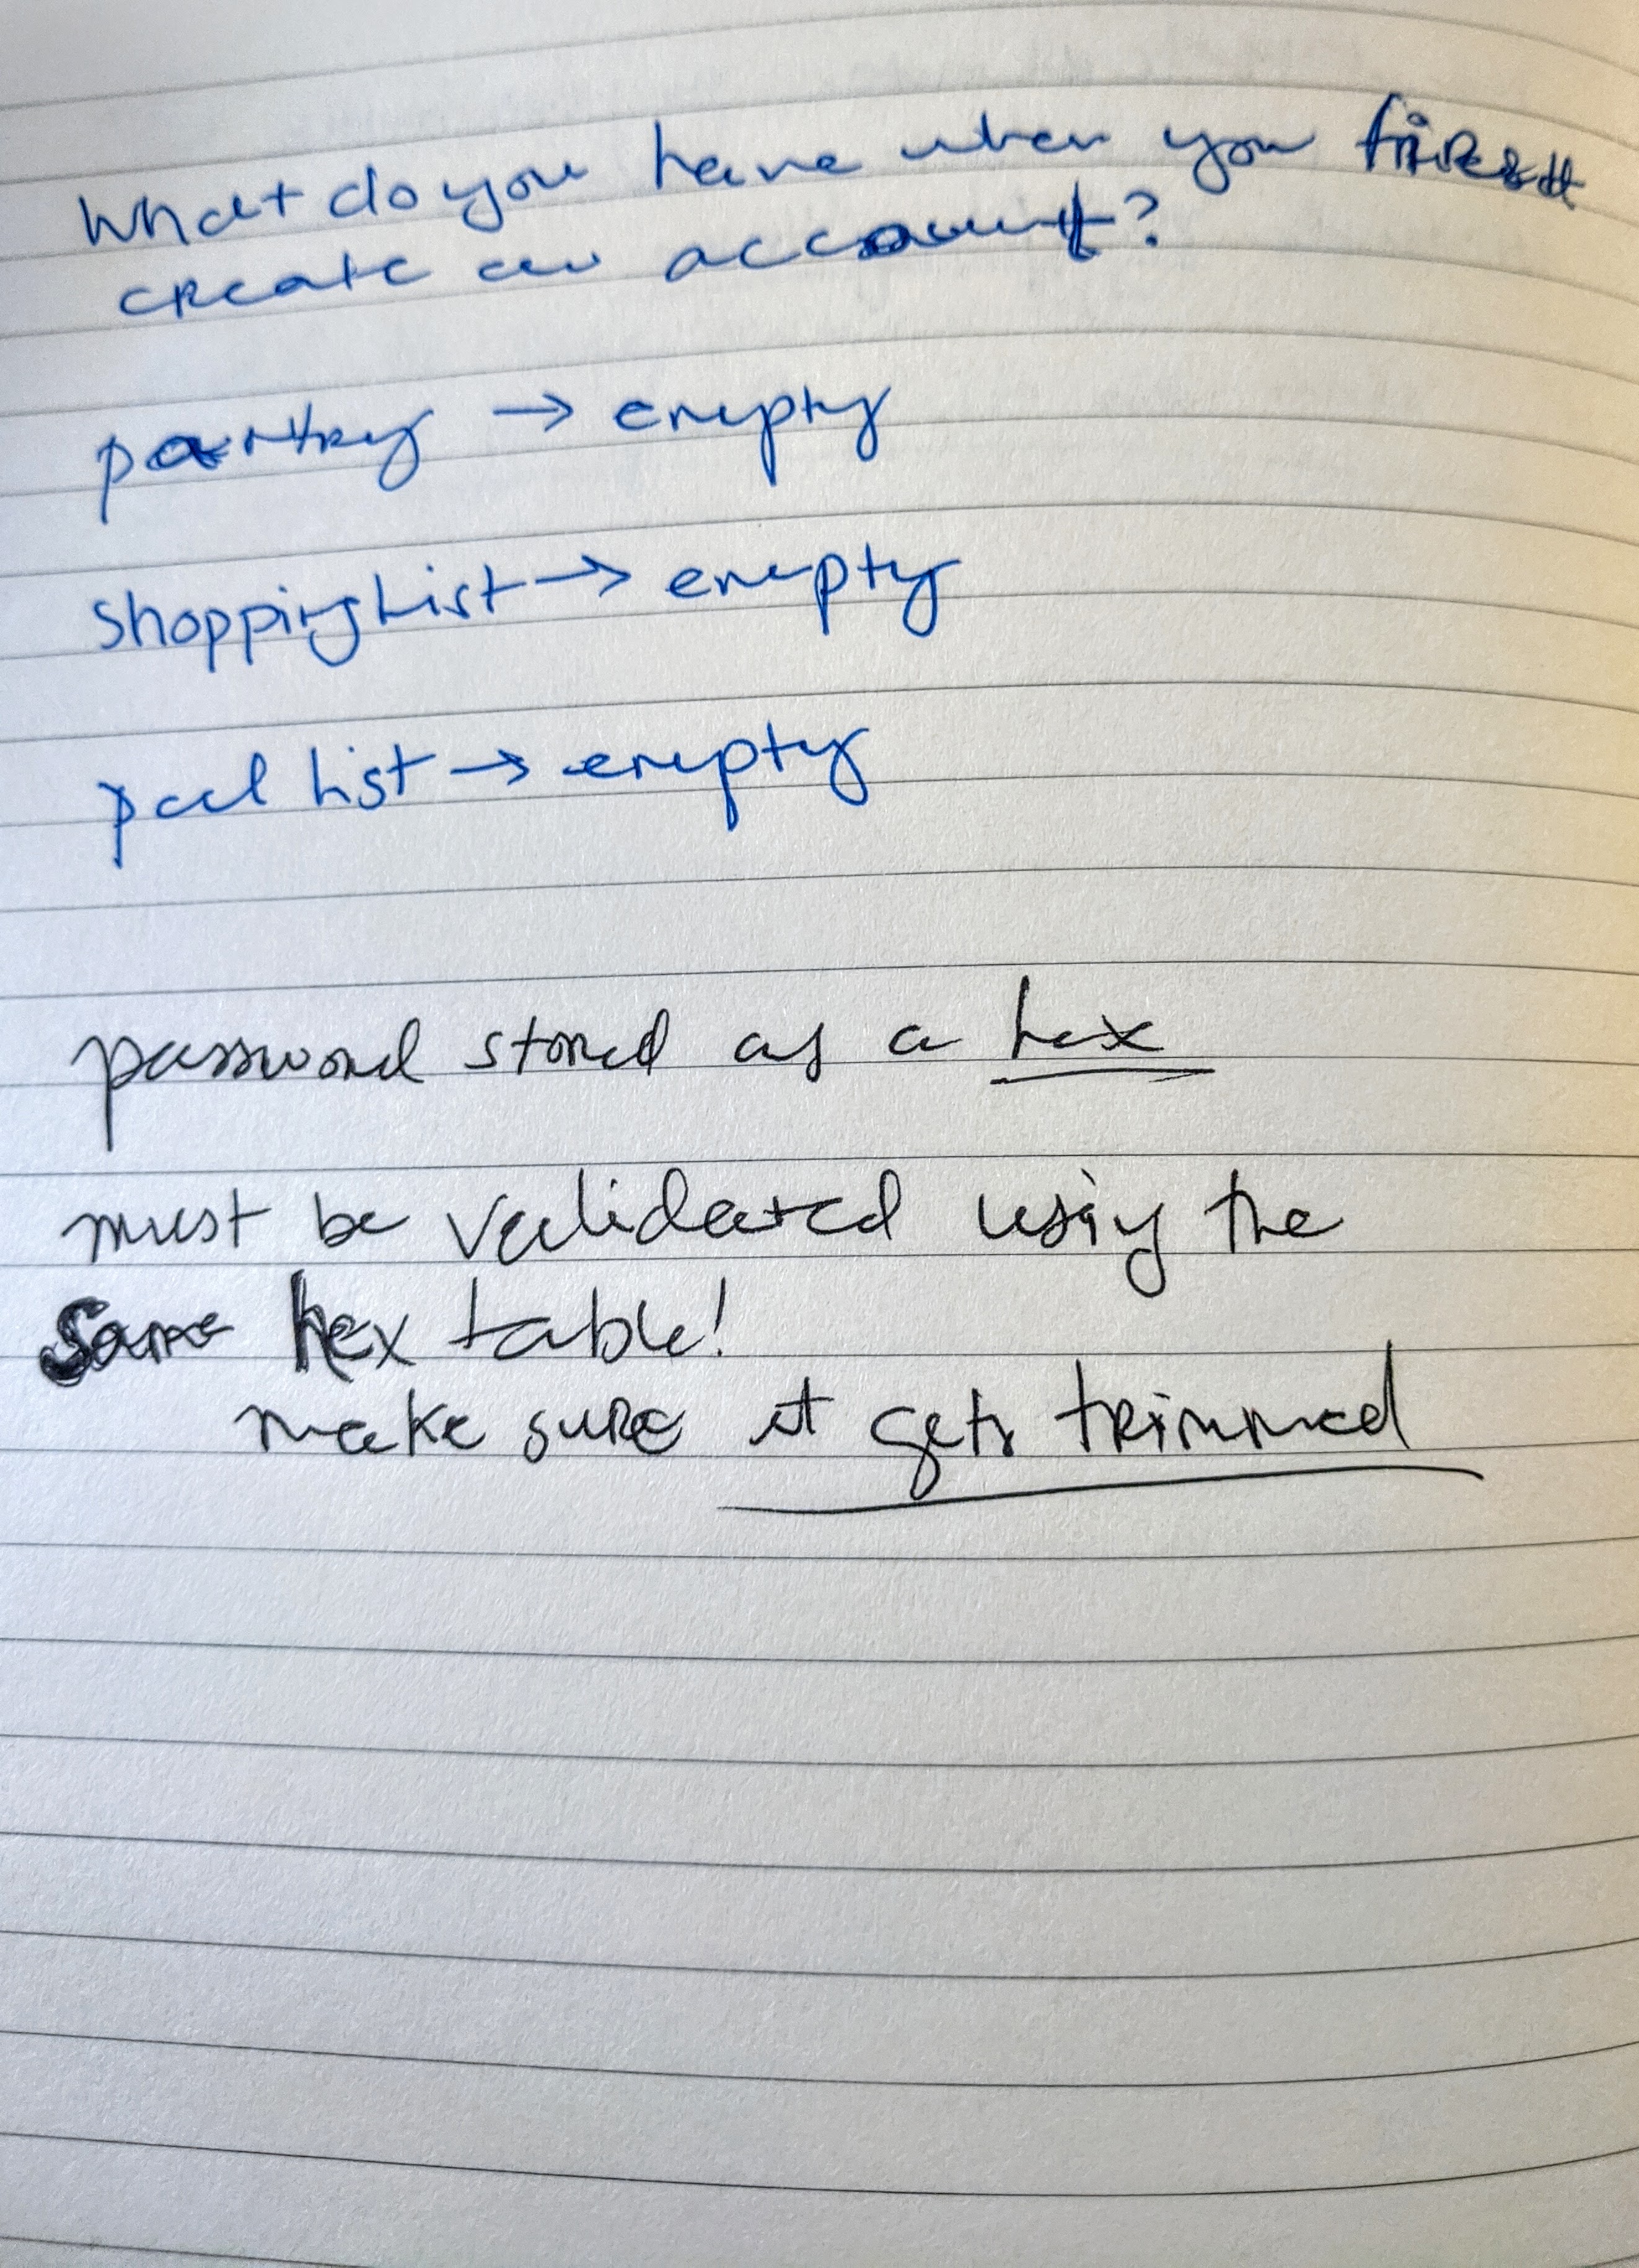 What do you have when you first
create an account?
pantry → empty
shoppingList → empty
pal list → empty
password stored as a hex
must be validated using the
same hex table!
make sure it gets trimmed